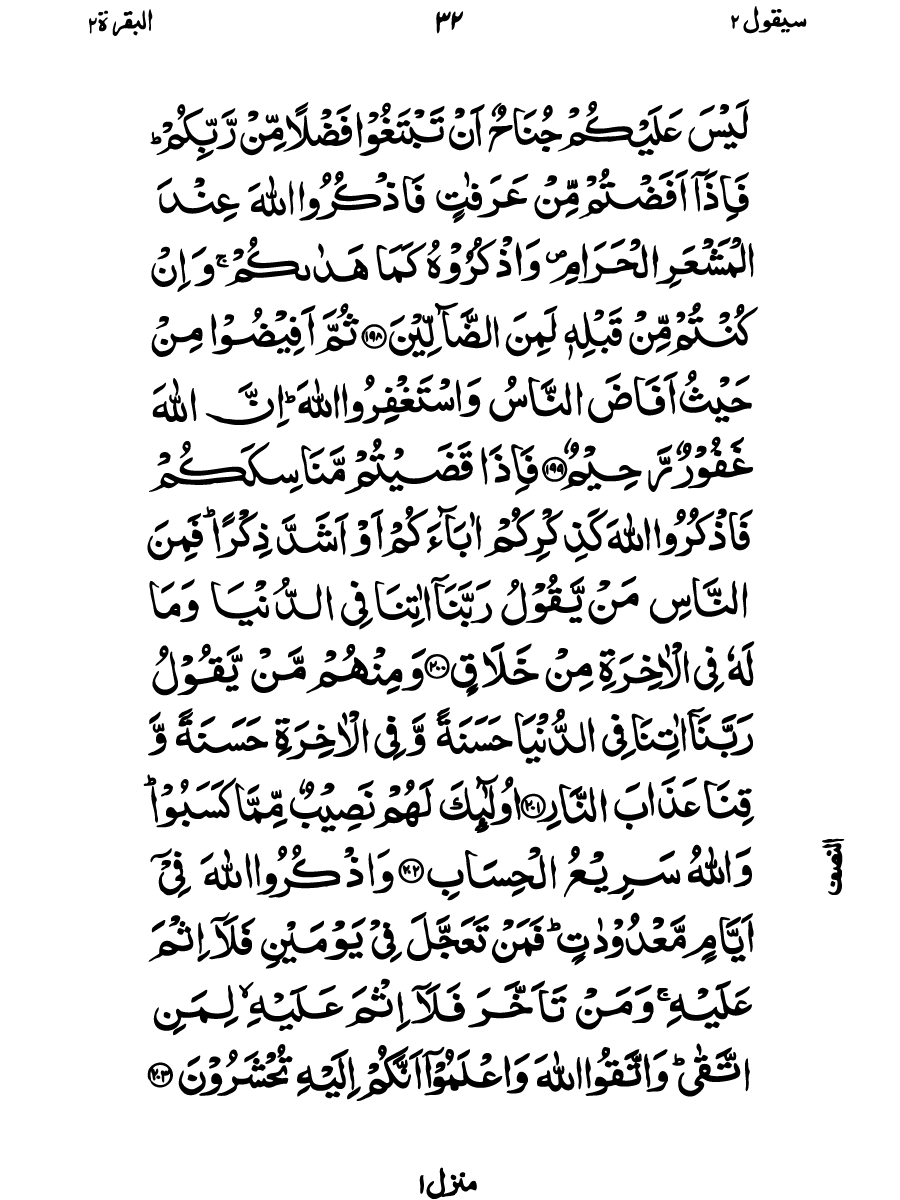 سيقول ٢ ٣٢ البقرة ٢
لَيْسَ عَلَيْكُمْ جُنَاحٌ اَنْ تَبْتَغُوْا فَضْلًا مِّنْ رَّبِّكُمْ ؕ
فَاِذَآ اَفَضْتُمْ مِّنْ عَرَفٰتٍ فَاذْكُرُوا اللّٰهَ عِنْدَ
الْمَشْعَرِ الْحَرَامِ ۪ وَاذْكُرُوْهُ كَمَا هَدٰىكُمْ ۚ وَاِنْ
كُنْتُمْ مِّنْ قَبْلِهٖ لَمِنَ الضَّآلِّيْنَ ﴿۱۹۸﴾ ثُمَّ اَفِيْضُوْا مِنْ
حَيْثُ اَفَاضَ النَّاسُ وَاسْتَغْفِرُوا اللّٰهَ ؕ اِنَّ اللّٰهَ
غَفُوْرٌ رَّحِيْمٌ ﴿۱۹۹﴾ فَاِذَا قَضَيْتُمْ مَّنَاسِكَكُمْ
فَاذْكُرُوا اللّٰهَ كَذِكْرِكُمْ اٰبَآءَكُمْ اَوْ اَشَدَّ ذِكْرًا ؕ فَمِنَ
النَّاسِ مَنْ يَّقُوْلُ رَبَّنَآ اٰتِنَا فِى الدُّنْيَا وَمَا
لَهٗ فِى الْاٰخِرَةِ مِنْ خَلَاقٍ ﴿۲۰۰﴾ وَمِنْهُمْ مَّنْ يَّقُوْلُ
رَبَّنَآ اٰتِنَا فِى الدُّنْيَا حَسَنَةً وَّفِى الْاٰخِرَةِ حَسَنَةً وَّ
قِنَا عَذَابَ النَّارِ ﴿۲۰۱﴾ اُولٰٓئِكَ لَهُمْ نَصِيْبٌ مِّمَّا كَسَبُوْا ؕ
وَاللّٰهُ سَرِيْعُ الْحِسَابِ ﴿۲۰۲﴾ وَاذْكُرُوا اللّٰهَ فِىْٓ
النصف
اَيَّامٍ مَّعْدُوْدٰتٍ ؕ فَمَنْ تَعَجَّلَ فِىْ يَوْمَيْنِ فَلَآ اِثْمَ
عَلَيْهِ ۚ وَمَنْ تَاَخَّرَ فَلَآ اِثْمَ عَلَيْهِ ۙ لِمَنِ
اتَّقٰى ؕ وَاتَّقُوا اللّٰهَ وَاعْلَمُوْٓا اَنَّكُمْ اِلَيْهِ تُحْشَرُوْنَ ﴿۲۰۳﴾
منزل ١